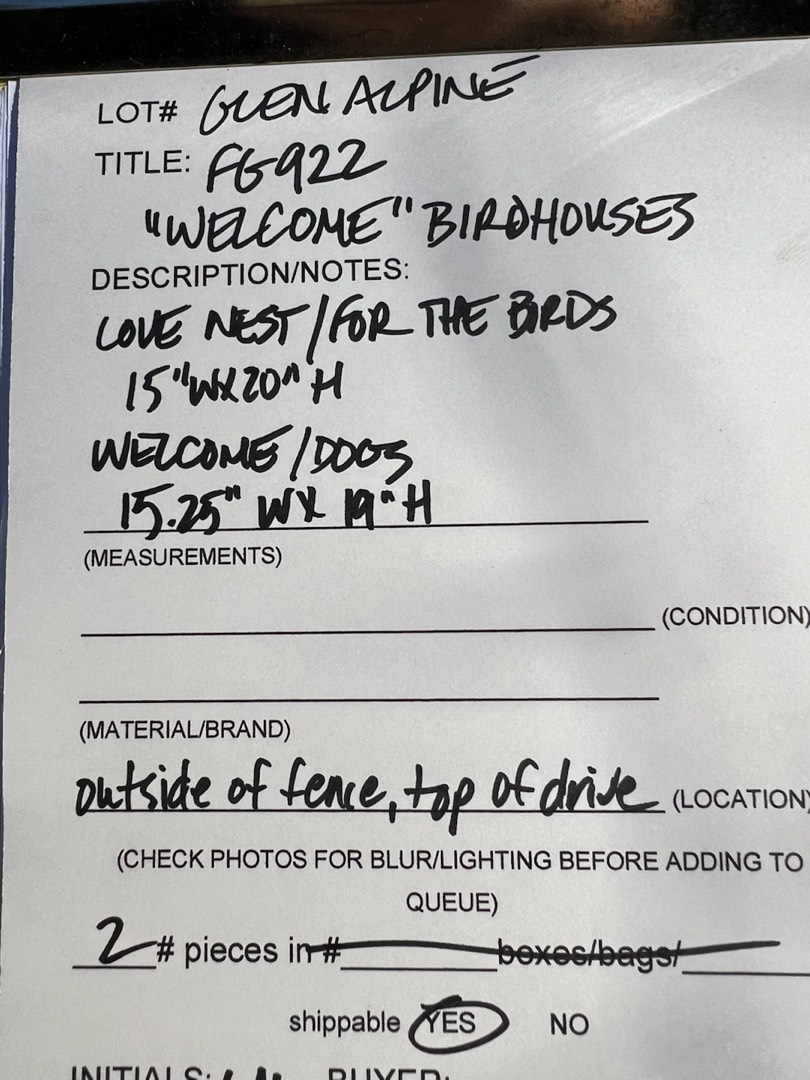 LOT# GLEN ALPINE
TITLE: FG922
"WELCOME" BIRDHOUSES
DESCRIPTION/NOTES:
LOVE NEST/FOR THE BIRDS
15"WX20"H
WELCOME/DOGS
15.25" WX 19"H
(MEASUREMENTS)
(CONDITION)
(MATERIAL/BRAND)
outside of fence, top of drive (LOCATION)
(CHECK PHOTOS FOR BLUR/LIGHTING BEFORE ADDING TO
QUEUE)
2 # pieces in # boxes/bags/
shippable YES NO
INITIALS: BUYER: